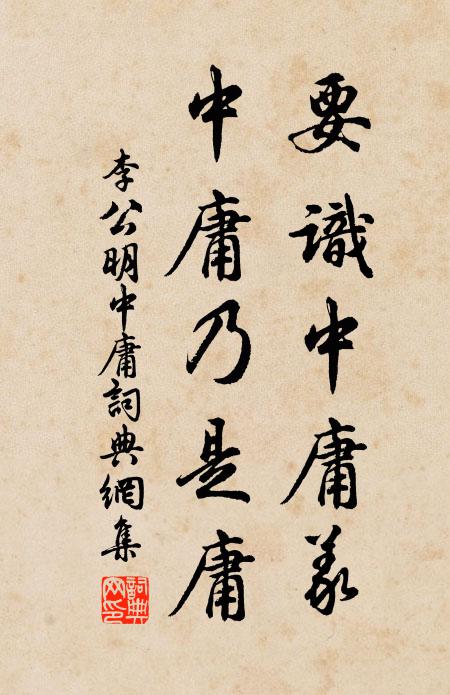 要識中庸義
中庸乃是庸
李公明中庸詞典網集
詞典網印